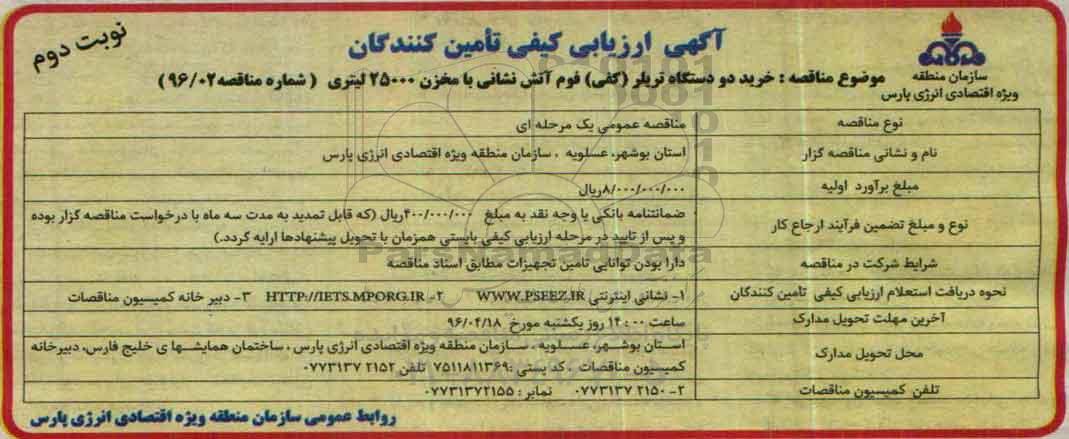 نوبت دوم
آگهی ارزیابی کیفی تأمین کنندگان
سازمان منطقه
ویژه اقتصادی انرژی پارس
موضوع مناقصه : خرید دو دستگاه تریلر (کفی) فوم آتش نشانی با مخزن ۲۵۰۰۰ لیتری ( شماره مناقصه ۹۶/۰۲)
نوع مناقصه
مناقصه عمومی یک مرحله ای
نام و نشانی مناقصه گزار
استان بوشهر، عسلویه ، سازمان منطقه ویژه اقتصادی انرژی پارس
مبلغ برآورد اولیه
۸/۰۰۰/۰۰۰/۰۰۰ریال
نوع و مبلغ تضمین فرآیند ارجاع کار
ضمانتنامه بانکی یا وجه نقد به مبلغ ۴۰۰/۰۰۰/۰۰۰ریال (که قابل تمدید به مدت سه ماه با درخواست مناقصه گزار بوده
و پس از تایید در مرحله ارزیابی کیفی بایستی همزمان با تحویل پیشنهادها ارایه گردد.)
شرایط شرکت در مناقصه
دارا بودن توانایی تامین تجهیزات مطابق اسناد مناقصه
نحوه دریافت استعلام ارزیابی کیفی تامین کنندگان
۱- نشانی اینترنتی WWW.PSEEZ.IR ۲- HTTP://IETS.MPORG.IR ۳- دبیر خانه کمیسیون مناقصات
آخرین مهلت تحویل مدارک
ساعت ۱۴:۰۰ روز یکشنبه مورخ ۹۶/۰۴/۱۸
محل تحویل مدارک
استان بوشهر، عسلویه ، سازمان منطقه ویژه اقتصادی انرژی پارس ، ساختمان همایشها ی خلیج فارس، دبیرخانه
کمیسیون مناقصات ، کد پستی :۷۵۱۱۸۱۱۳۶۹ تلفن ۲۱۵۲ ۰۷۷۳۱۳۷
تلفن کمیسیون مناقصات
۲- ۲۱۵۰ ۰۷۷۳۱۳۷ نمابر : ۰۷۷۳۱۳۷۲۱۵۵
روابط عمومی سازمان منطقه ویژه اقتصادی انرژی پارس